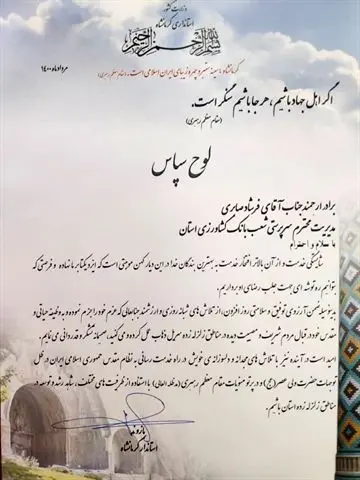 وزارت کشور
استانداری کرمانشاه
بسم الله الرحمن الرحیم
کرمانشاه، سینه ستبر و چهره زیبای ایران اسلامی است. (مقام معظم رهبری)
مرداد ماه ۱۴۰۰
اگر اهل جهاد باشیم، هر جا باشیم سنگر است.
(مقام معظم رهبری)
لوح سپاس
برادر ارجمند جناب آقای فرشاد صابری
مدیریت محترم سرپرستی شعب بانک کشاورزی استان
با سلام و احترام
شایستگی خدمت و از آن بالاتر افتخار خدمت به بهترین بندگان خدا در این دیار کهن موهبتی است که ایزد یکتا بر ما نهاده و فرصتی که
توانیم ره توشه ای جهت جلب رضای او برداریم.
بدینوسیله ضمن آرزوی توفیق و سلامتی روز افزون، از تلاش های شبانه روزی و ارزشمند جنابعالی که عزم خود را جزم نموده و به وظیفه حیاتی و
مقدس خود در قبال مردم شریف و مصیبت دیده در مناطق زلزله زده سرپل ذهاب عمل کرده و می کنید، صمیمانه تشکر و قدردانی می نمایم.
امید است در آینده نیز با تلاش های مجدانه و دلسوزانه ی خویش در راه خدمت رسانی به نظام مقدس جمهوری اسلامی ایران در ظل
توجهات حضرت ولی عصر (عج) و در پرتو منویات مقام معظم رهبری (مدظله العالی) با استفاده از ظرفیت های مختلف، شاهد رشد و توسعه در
مناطق زلزله زده استان باشیم.
بازوند
استاندار کرمانشاه